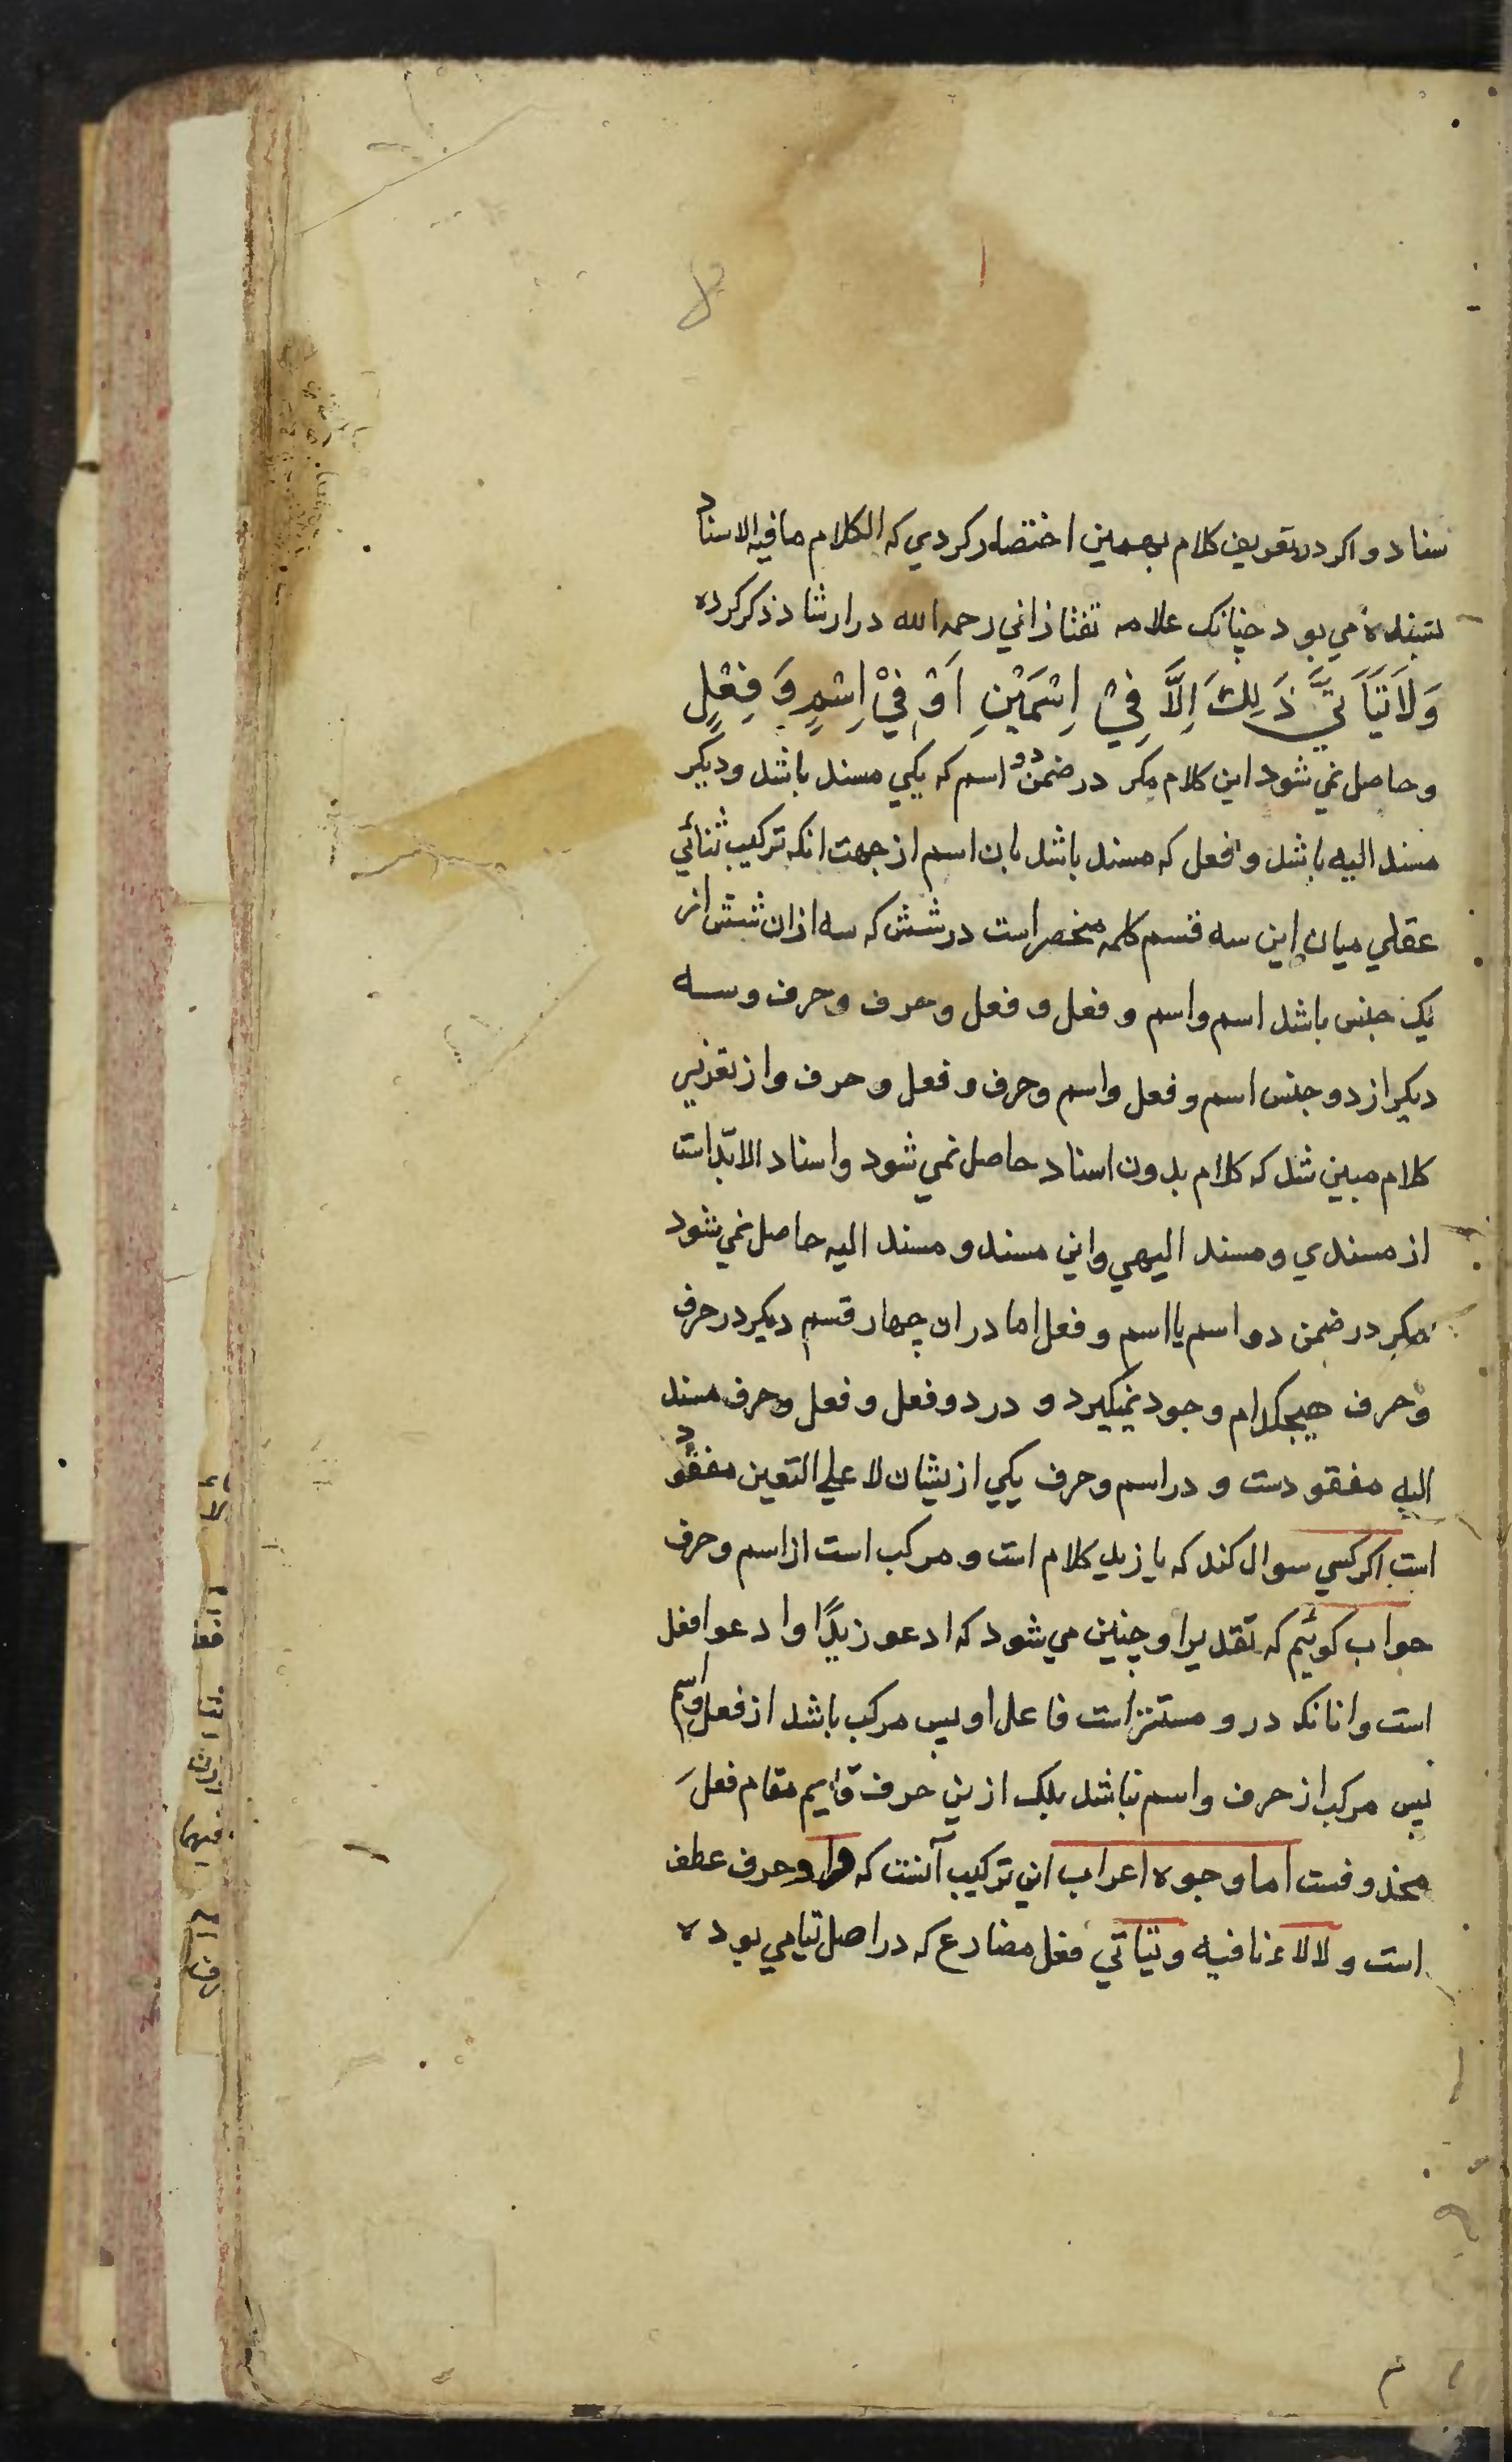 سناد واكر در تعريف كلام بهمين اختصار كردي كه الكلام ما فيه الاسناد
پسنديده مي بود چنانك علامه تفتازاني رحمه الله در ارشاد ذكر كرده
وَلَا يَتَأَتَّي ذَلِكَ اِلَّا فِيْ اِسْمَيْنِ اَوْ فِيْ اِسْمٍ وَ فِعْلٍ
و حاصل نمي شود اين كلام مكر در ضمن دو اسم كه يكي مسند باشد و ديكر
مسند اليه باشد و فعل كه مسند باشد بان اسم از جهت انكه تركيب ثنائي
عقلي ميان اين سه قسم كلمه منحصر است در شش كه سه ازان شش از
يك جنس باشد اسم و اسم و فعل و فعل و حرف و حرف و سه
ديكر از دو جنس اسم و فعل و اسم و حرف و فعل و حرف و از تعريف
كلام مبين شد كه كلام بدون اسناد حاصل نمي شود و اسناد الابد است
از مسندي و مسند اليهي و اين مسند و مسند اليه حاصل نمي شود
مكر در ضمن دو اسم يا اسم و فعل اما در ان چهار قسم ديكر در حرف
و حرف هيچكدام وجود نميكيرد و در دو فعل و فعل و حرف مسند
اليه مفقودست و در اسم و حرف يكي ازيشان لا علي التعين مفقود
است اكر كسي سوال كند كه يا زيد كلام است و مركب است از اسم و حرف
جواب كوئيم كه تقدير او چنين مي شود كه ادعو زيدًا و ادعو افعل
است و انا نكه درو مستتر است فاعل او پس مركب باشد از فعل و اسم
پس مركب از حرف و اسم نباشد بلك ازين حرف قايم مقام فعل
محذوفست اما وجوه اعراب اين تركيب آنست كه واو حرف عطف
است و لا لاء نافيه و يتاتي فعل مضارع كه در اصل تيامي بوده